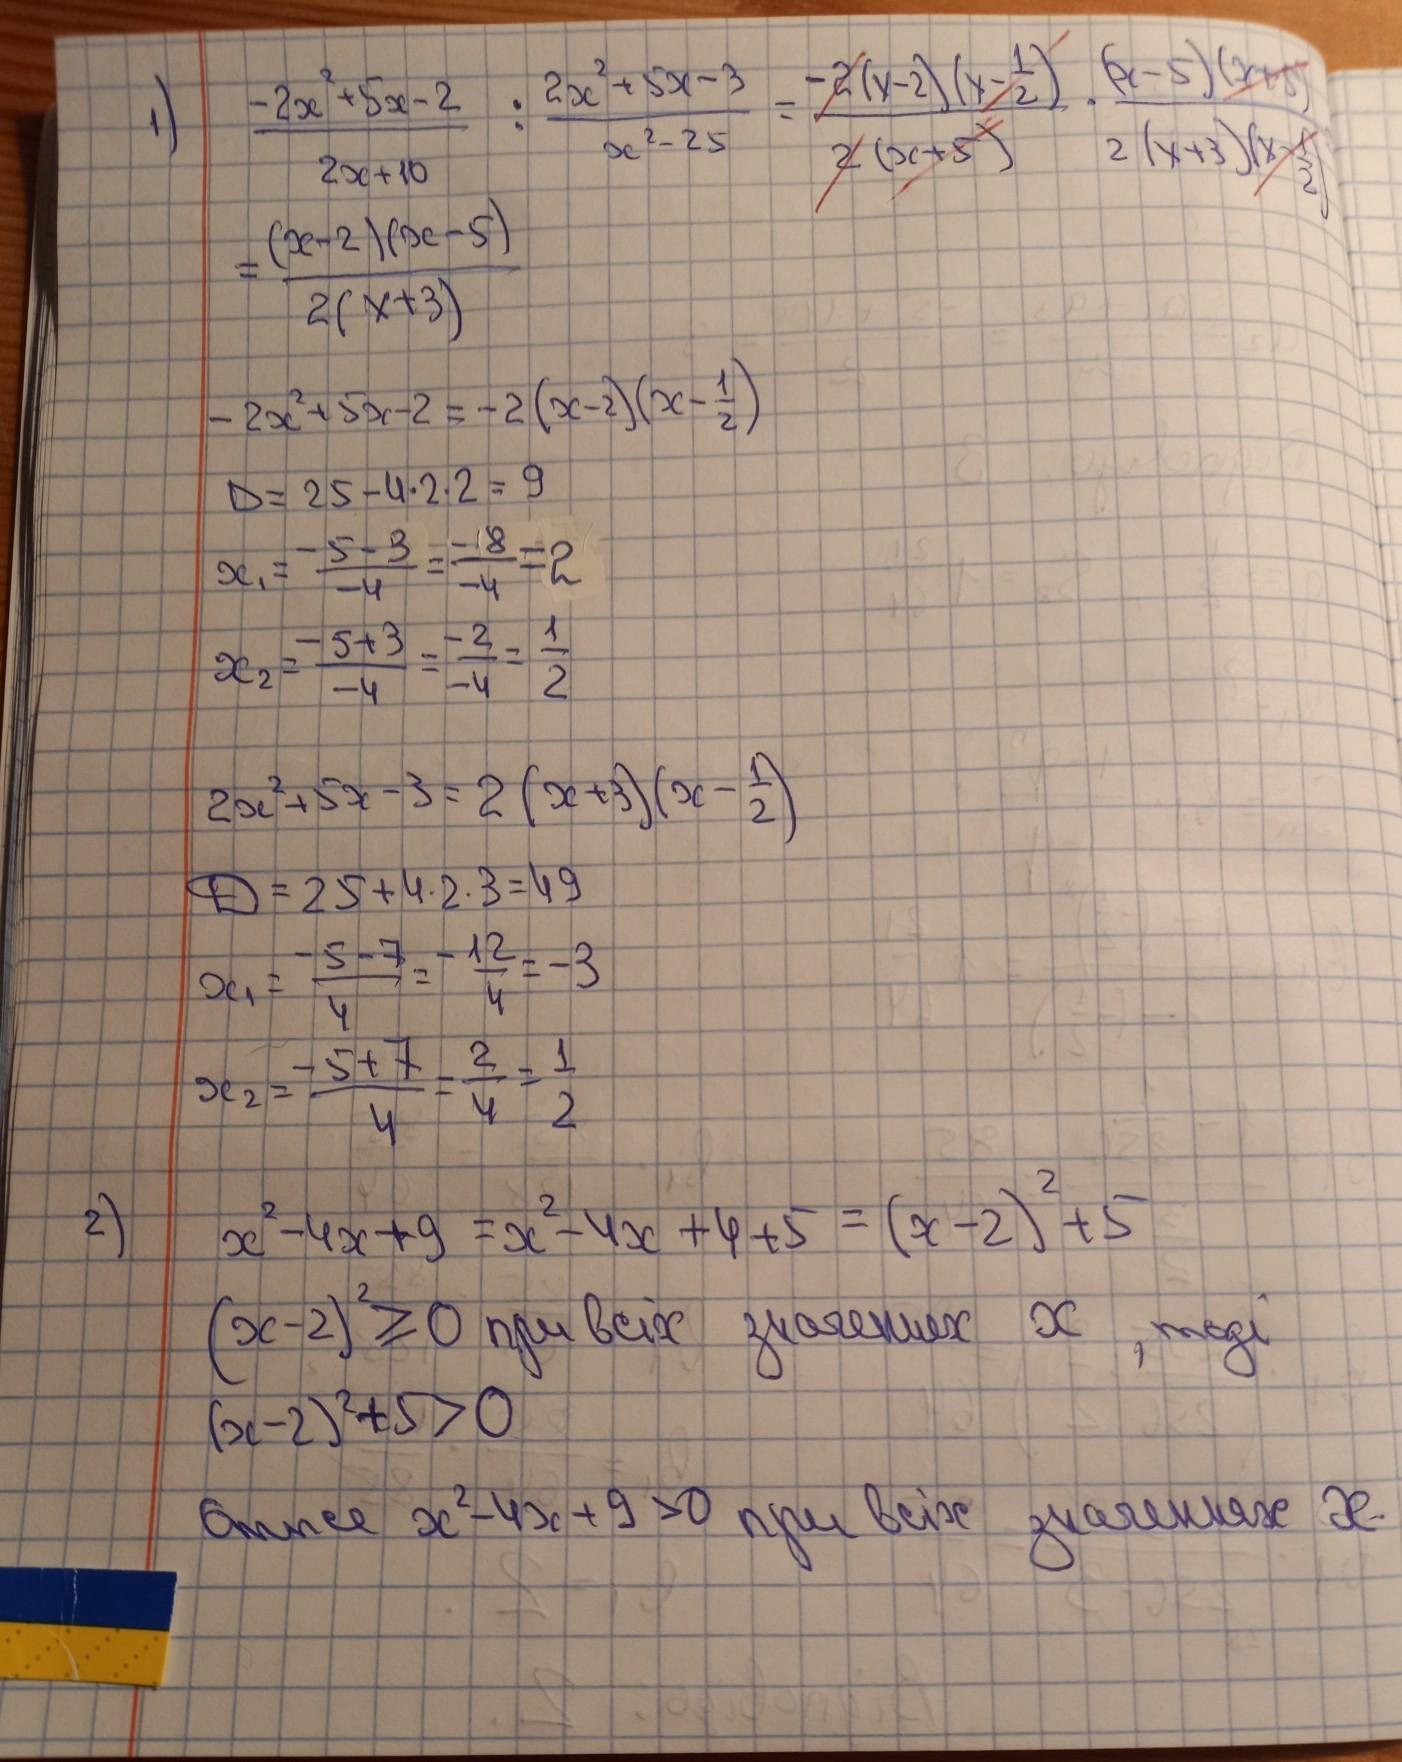 1) (-2x²+5x-2)/(2x+10) : (2x²+5x-3)/(x²-25) = (-2(x-2)(x-1/2))/(2(x+5)) · ((x-5)(x+5))/(2(x+3)(x-1/2))
= ((x-2)(x-5))/(2(x+3))
-2x²+5x-2 = -2(x-2)(x-1/2)
D = 25-4·2·2 = 9
x₁ = (-5-3)/(-4) = (-8)/(-4) = 2
x₂ = (-5+3)/(-4) = (-2)/(-4) = 1/2
2x²+5x-3 = 2(x+3)(x-1/2)
D = 25+4·2·3 = 49
x₁ = (-5-7)/4 = -12/4 = -3
x₂ = (-5+7)/4 = 2/4 = 1/2
2) x²-4x+9 = x²-4x+4+5 = (x-2)²+5
(x-2)² ⩾ 0 при всіх значеннях x, тоді
(x-2)²+5 > 0
Отже x²-4x+9 > 0 при всіх значеннях x.